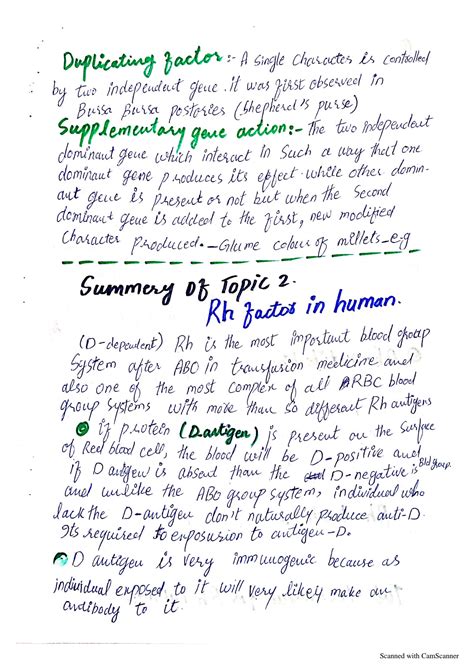 Duplicating factor:- A single character is controlled
by two independent gene. it was first observed in
Bursa Bursa pastories (Shepherd's purse)
Supplementary gene action:- The two independent
dominant gene which interact in Such a way that one
dominant gene produces its effect while other domin-
ant gene is present or not but when the Second
dominant gene is added to the first, new modified
Character produced. - Glume colour of millets - e.g
Summery Of Topic 2.
Rh factor in human.
(D-dependent) Rh is the most important blood group
System after ABO in transfusion medicine and
also one of the most complex of all RBC blood
group systems with more than 50 different Rh antigens
if protein (D-antigen) is present on the Surface
of Red blood cell, the blood will be D-positive and
if D antigen is absend than the D-negative is Bld group.
and unlike the ABO group system, individual who
lack the D-antigen don't naturally produce anti-D.
Its required to exposusion to antigen-D.
D antigen is very immunogenic because as
individual exposed to it will very likely make an
antibody to it.
Scanned with CamScanner